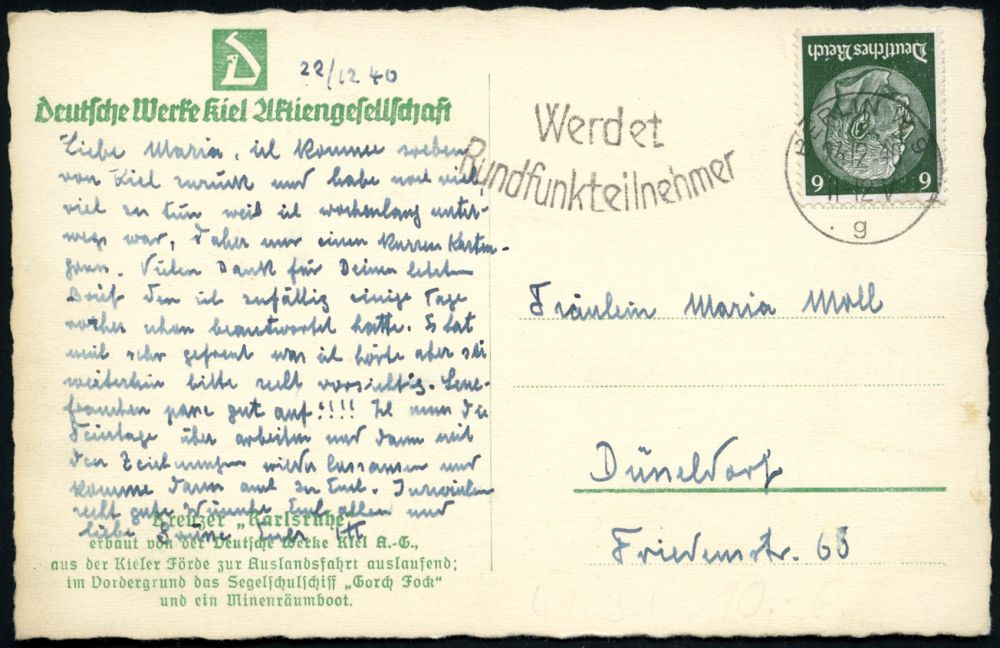 D
22/12 40
Deutsche Werke Kiel Aktiengesellschaft
Liebe Maria, ich komme soeben
von Kiel zurück und habe noch viel,
viel zu tun weil ich wochenlang unter-
wegs war, daher nur einen kurzen Karten-
gruss. Vielen Dank für Deinen letzten
Brief den ich zufällig einige Tage
vorher schon beantwortet hatte. Es hat
mich sehr gefreut was ich hörte aber sei
weiterhin bitte recht vorsichtig.
passe gut auf!!!! Ich muss die
Feiertage über arbeiten und dann mit
den Zeichnungen wieder und
komme dann auch zu Euch. Inzwischen
recht gute Wünsche Euch allen und
liebe Grüsse Euer
Kreuzer „Karlsruhe"
erbaut von der Deutsche Werke Kiel A.-G.,
aus der Kieler Förde zur Auslandsfahrt auslaufend;
im Vordergrund das Segelschulschiff „Gorch Fock"
und ein Minenräumboot.
Werdet
Rundfunkteilnehmer
Deutsches Reich
6 6
BERLIN
g
Fräulein Maria Moll
Düsseldorf
Friedenstr. 65